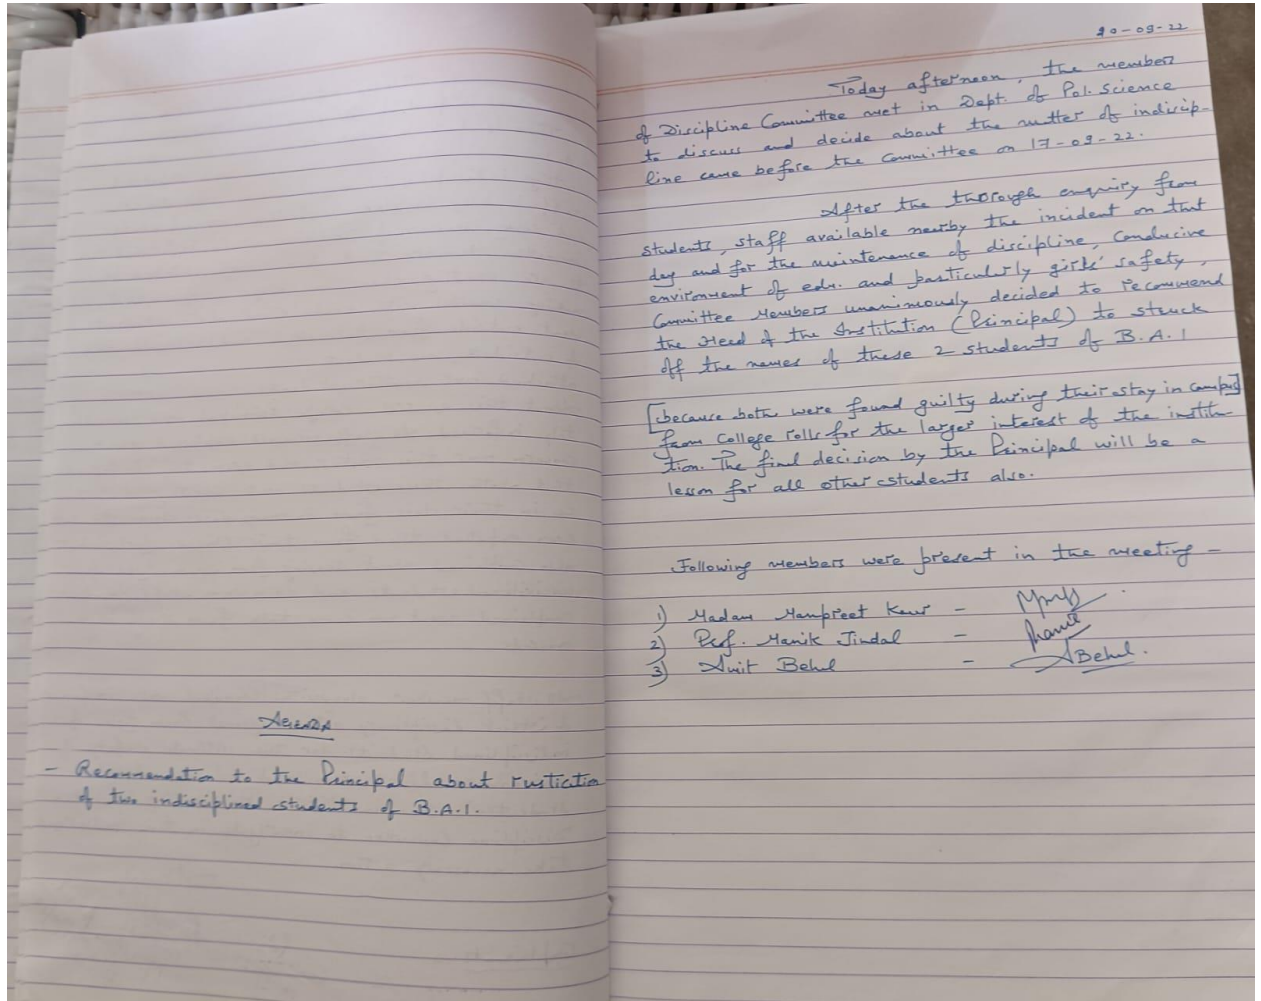 AGENDA
- Recommendation to the Principal about rustication
of two indisciplined students of B.A.I.
20-09-22
Today afternoon, the members
of Discipline Committee met in Dept. of Pol. Science
to discuss and decide about the matter of indiscip-
line came before the Committee on 17-09-22.
After the thorough enquiry from
students, staff available nearby the incident on that
day and for the maintenance of discipline, conducive
environment of edu. and particularly girls' safety,
Committee Members unanimously decided to recommend
the Head of the Institution (Principal) to struck
off the names of these 2 students of B.A.I
[because both were found guilty during their stay in campus]
from College rolls for the larger interest of the institu-
tion. The final decision by the Principal will be a
lesson for all other students also.
Following members were present in the meeting -
1) Madam Manpreet Kaur -
2) Prof. Manik Jindal -
3) Amit Behal - ABehal.